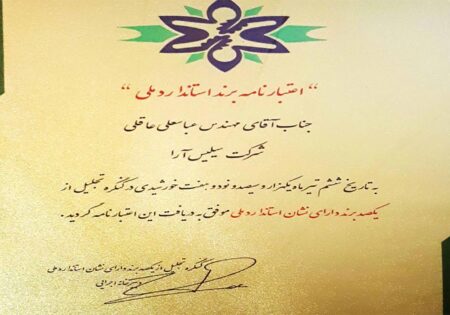 " اعتبارنامه برند استاندارد ملی "
جناب آقای مهندس عباسعلی عاقلی
شرکت سیلیس آرا
به تاریخ ششم تیرماه یکهزار و سیصد و نود و هفت خورشیدی در کنگره تجلیل از
یکصد برند دارای نشان استاندارد ملی موفق به دریافت این اعتبارنامه گردید.
کنگره تجلیل از یکصد برند دارای نشان استاندارد ملی
اجرایی